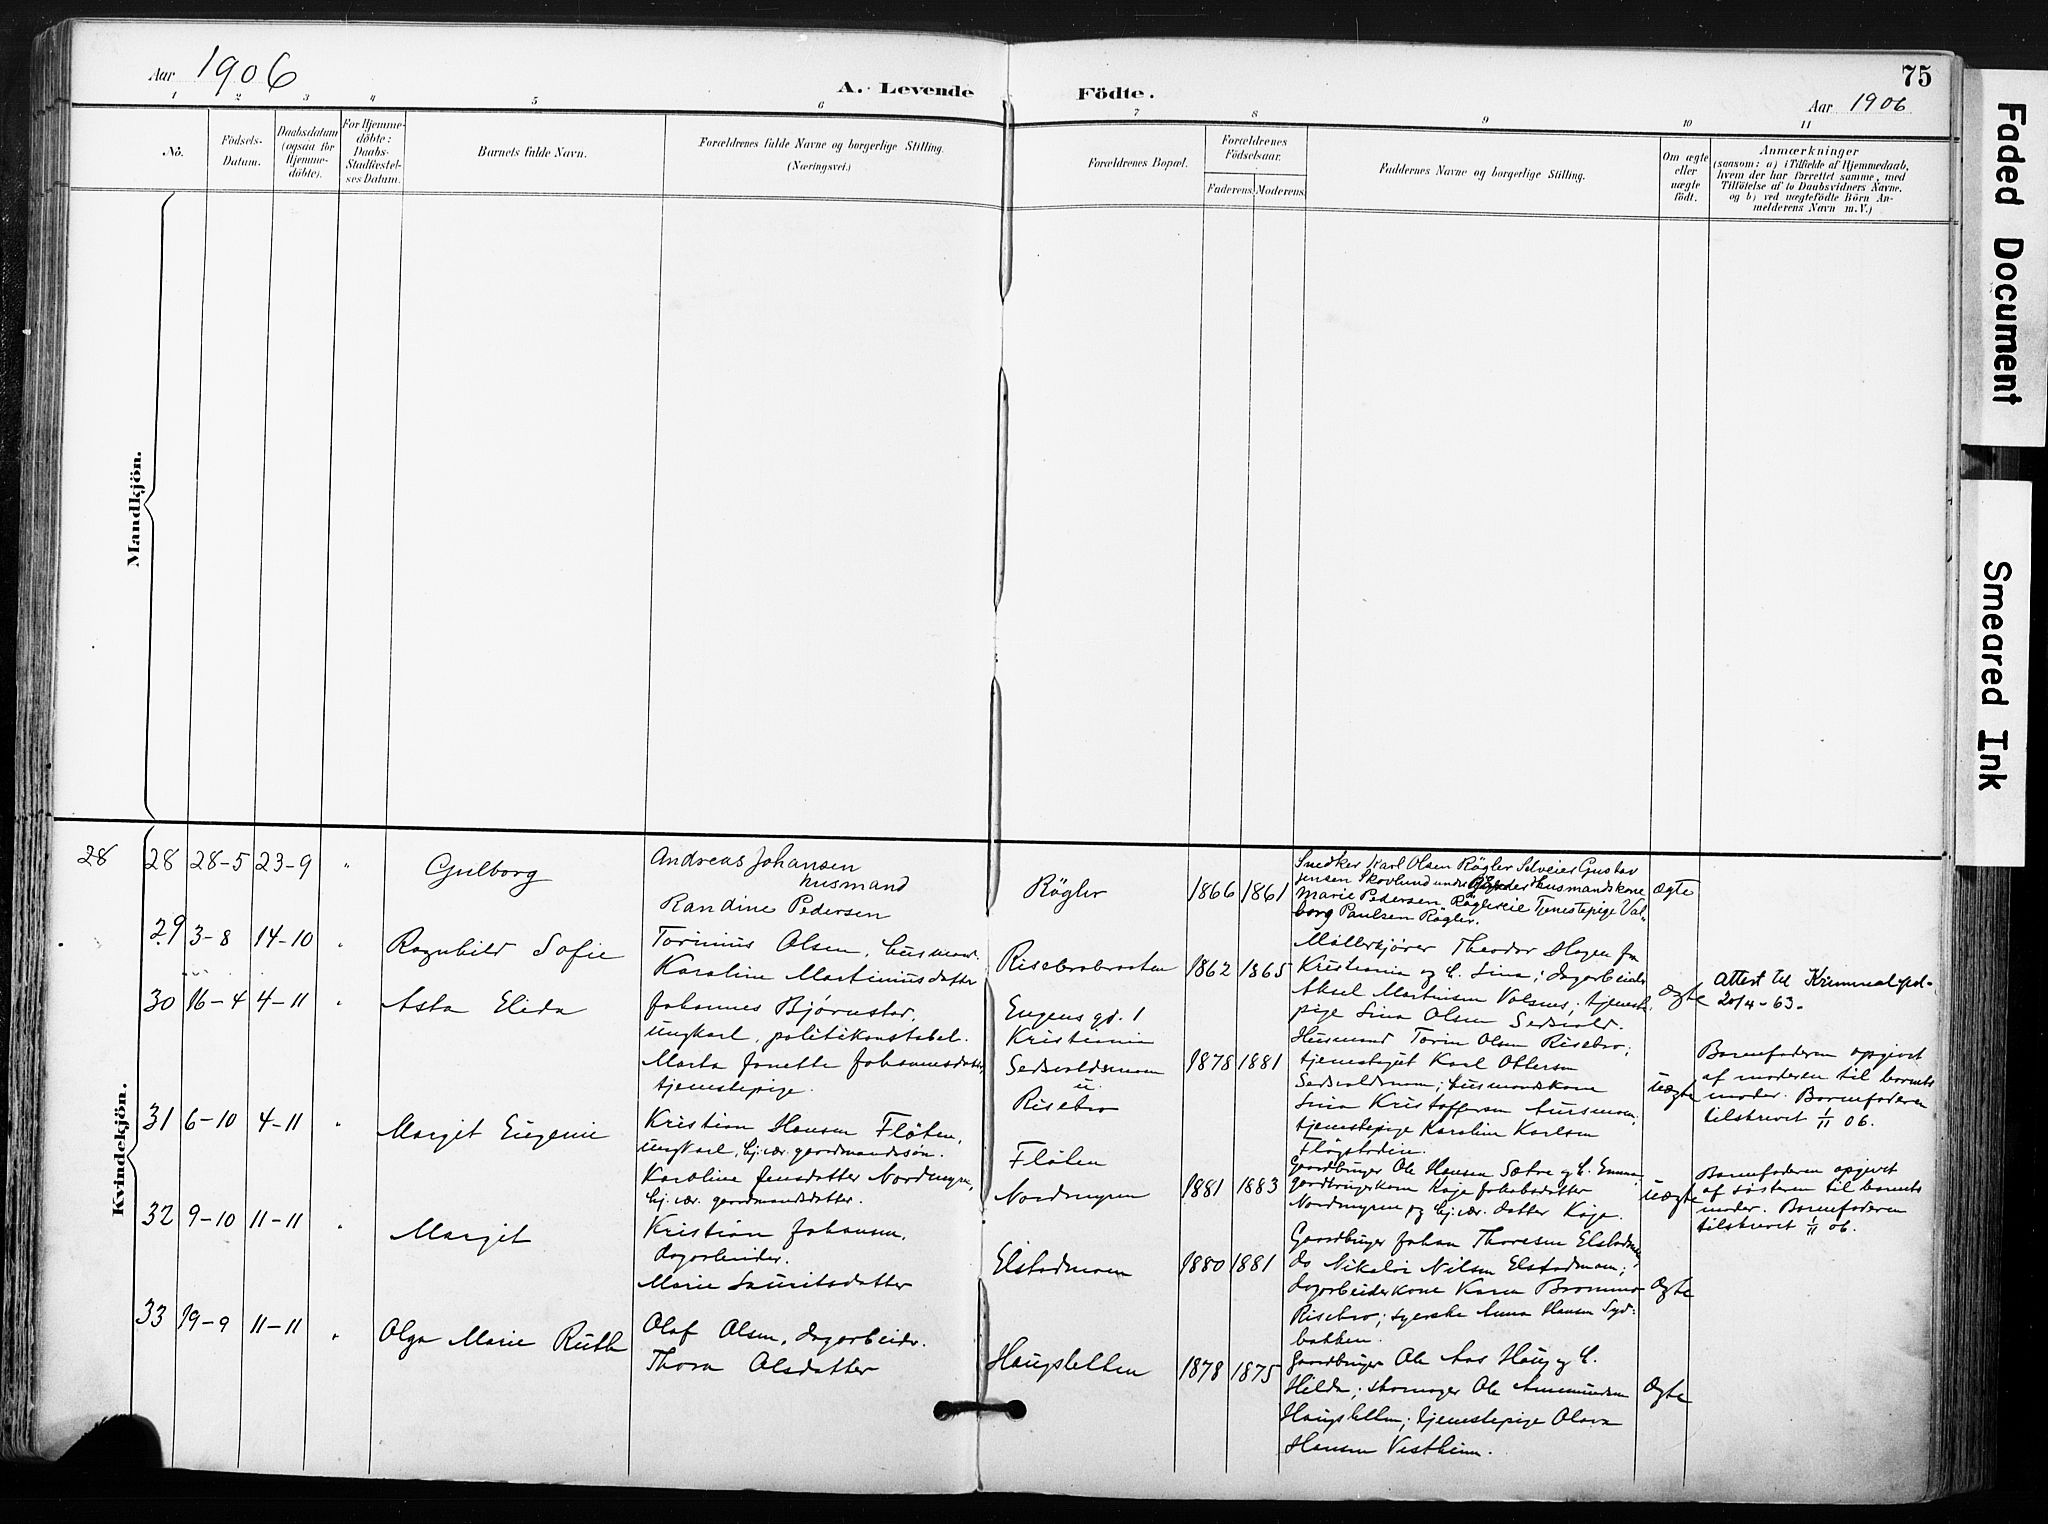 Aar 1906
A. Levende Födte.
75
Aar 1906
1 2 3 4 5 6 7 8 9 10 11
No.
Födsels-Datum.
Daabsdatum (ogsaa for Hjemme-döbte).
For Hjemme-döbte: Daabs-Stadfæstel-ses Datum.
Barnets fulde Navn.
Forældrenes fulde Navne og borgerlige Stilling.
(Næringsvei.)
Forældrenes Bopæl.
Forældrenes Födselsaar.
Faderens. Moderens.
Faddernes Navne og borgerlige Stilling.
Om ægte eller uægte födt.
Anmærkninger
(saasom: a) i Tilfælde af Hjemmedaab,
hvem der har forrettet samme, med
Tilföielse af to Daabsvidners Navne.
og b) ved uægtefödte Börn An-
melderens Navn m. V.)
Mandkjön.
Kvindekjön.
28 28 28-5 23-9 " Gulborg
Andreas Johansen
husmand
Randine Pedersen
Rögler
1866 1861
Snedker Karl Olsen Rögler Selveier Gustav
Jensen Skovlund husmandskone
Marie Pedersen Tjenestepige Val-
borg Paulsen Rögler.
ægte
29 3-8 14-10 " Ragnhild Sofie
Torinius Olsen, husmand.
Karoline Martiniusdatter
Risebrobraaten
1862 1865
Möllerkjörer Theodor Hagen fra
Kristiania og h. Lina; dagarbeider
Aksel Martinsen Volsnes; tjeneste-
pige Lina Olsen Sedsvold.
ægte
Attest til Kriminalpol-
20/4-63.
30 16-4 4-11 " Asta Elida
Johannes Bjørnstad,
ungkarl, politikonstabel.
Marta Janette Johannesdatter,
tjenestepige.
Eugens gd. 1
Kristiania
Sedsvoldsmoen
u
Risebro
1878 1881
Husmand Torin Olsen Risebro;
tjenestegut Karl Ottersen
Sedsvoldsmoen; husmandskone
Lina Kristoffersen Aursmoen;
tjenestepige Karoline Karlsen
Flögstadien.
uægte
Barnefaderen opgivet
af moderen til barnets
moder. Barnefaderen
tilskrevet 1/11 06.
31 6-10 4-11 " Margit Eugenie
Kristian Hansen Flöten,
ungkarl, hj.vær. gaardmandssön.
Karoline Jensdatter Nordmyren,
hj.vær. gaardmandsdatter.
Flöten
Nordmyren
1881 1883
Gaardbruger Ole Hansen Sætre og h. Emma,
gardbrugskone Kaje Jakobsdatter
Nordmyren og hj.vær. datter Kaje.
uægte
Barnefaderen opgivet
af søsteren til barnets
moder. Barnefaderen
tilskrevet 1/11 06.
32 9-10 11-11 " Margit
Kristian Johansen,
dagarbeider.
Marie Lauritsdatter
Elstadmoen
1880 1881
Gaardbruger Johan Thoresen Elstadmoen,
do Nikolai Nilsen Elstadmoen;
dagarbeiderkone Karen
Risebro; syerske Anna Hansen Syd-
bakken.
ægte
33 19-9 11-11 " Olga Marie Ruth
Olaf Olsen, dagarbeider.
Thora Olsdatter
Haugsletten
1878 1875
Gaardbruger Ole Aas Haug og h.
Hilda; skomager Ole Amundsen
Haugsletten; tjenestepige Olava
Hansen Vestheim.
ægte
Faded Document
Smeared Ink